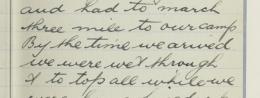 and had to march
three mile to our camp
By the time we arived
we were wet through
& to top all while we